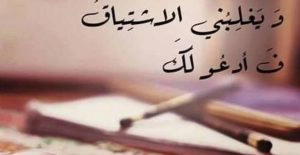 وَ يَغْلِبُني الاشتِياقُ
فَ أدعُو لَكَ